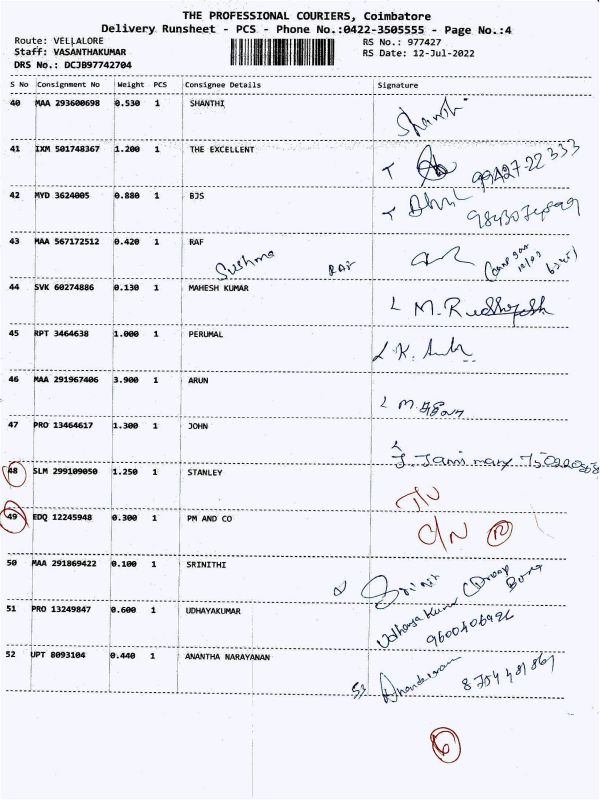 THE PROFESSIONAL COURIERS, Coimbatore
Delivery Runsheet - PCS - Phone No.:0422-3505555 - Page No.:4
Route: VELLALORE
RS No.: 977427
Staff: VASANTHAKUMAR
RS Date: 12-Jul-2022
DRS No.: DCJB97742704
S No Consignment No Weight PCS Consignee Details Signature
40 MAA 293600698 0.530 1 SHANTHI Shanthi
41 IXM 501748367 1.200 1 THE EXCELLENT 99427-22333
42 MYD 3624005 0.880 1 BJS
43 MAA 567172512 0.420 1 RAF
Sushma
44 SVK 60274886 0.130 1 MAHESH KUMAR
45 RPT 3464638 1.000 1 PERUMAL
46 MAA 291967406 3.900 1 ARUN
47 PRO 13464617 1.300 1 JOHN
48 SLM 299109050 1.250 1 STANLEY
49 EDQ 12245948 0.300 1 PM AND CO C/N
50 MAA 291869422 0.100 1 SRINITHI
51 PRO 13249847 0.600 1 UDHAYAKUMAR Udhaya Kumar
9600406926
52 UPT 8093104 0.440 1 ANANTHA NARAYANAN
6